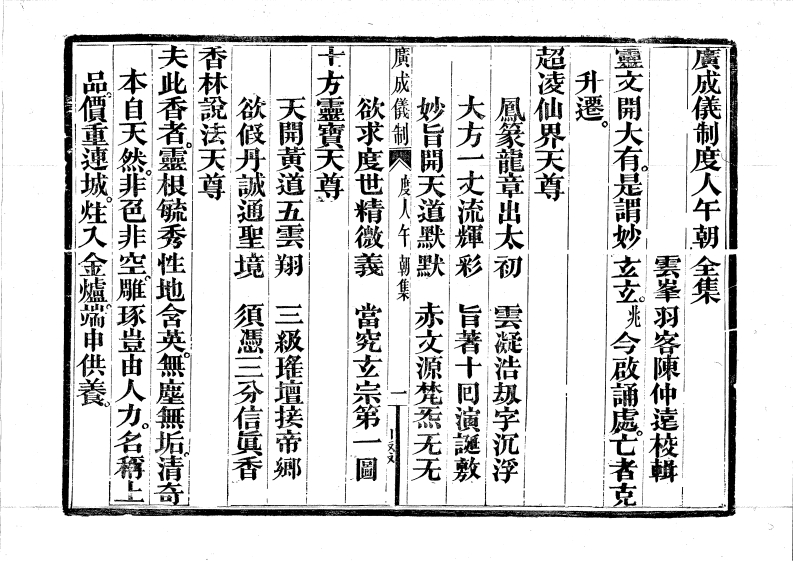 廣成儀制度人午朝全集
雲峯羽客陳仲遠校輯
靈文開大有。是謂妙玄玄。兆今啟誦處。亡者克
升遷。
超凌仙界天尊
鳳篆龍章出太初　雲凝浩刼字沉浮
大方一丈流輝彩　旨著十回演誕敷
妙旨開天道默默　赤文源梵炁无无
廣成儀制　度人午朝集　一
欲求度世精微義　當究玄宗第一圖
十方靈寶天尊
天開黃道五雲翔　三級璀壇接帝鄉
欲假丹誠通聖境　須憑三分信眞香
香林說法天尊
夫此香者。靈根毓秀。性地含英。無塵無垢。清奇
本自天然。非色非空。雕琢豈由人力。名稱上
品。價重連城。炷入金爐。端申供養。